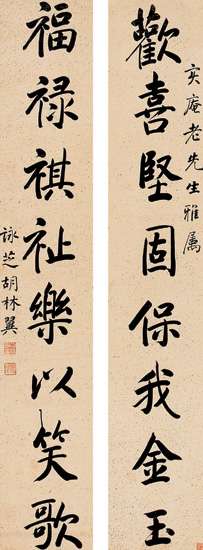 歡喜堅固保我金玉
寅庵老先生雅属
福禄祺祉樂以笑歌
詠芝胡林翼